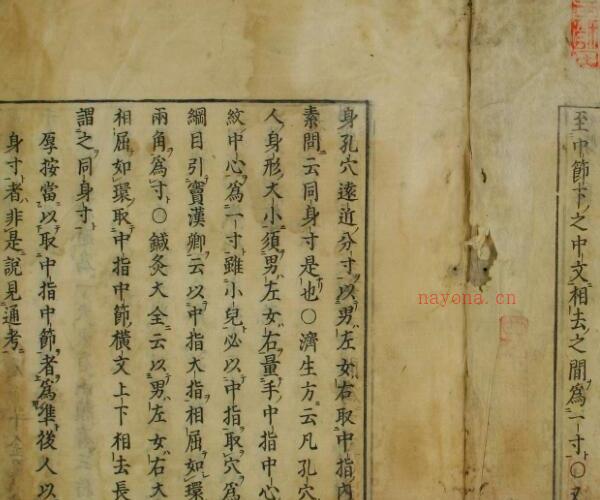 至中節下之中文相去之間爲一寸○又
身孔穴遠近分寸以男左女右取中指內
素問云同身寸是也○濟生方云凡孔穴
人身形大小須男左女右量手中指中心
紋中心爲一寸雖小兒必以中指取穴爲
綱目引竇漢卿云以中指大指相屈如環
兩角爲寸○鍼灸大全云以男左女右大
相屈如環取中指中節橫文上下相去長
謂之同身寸
厚按當以取中指中節者爲準後人以
身寸者非是說見通考
nayona.cn